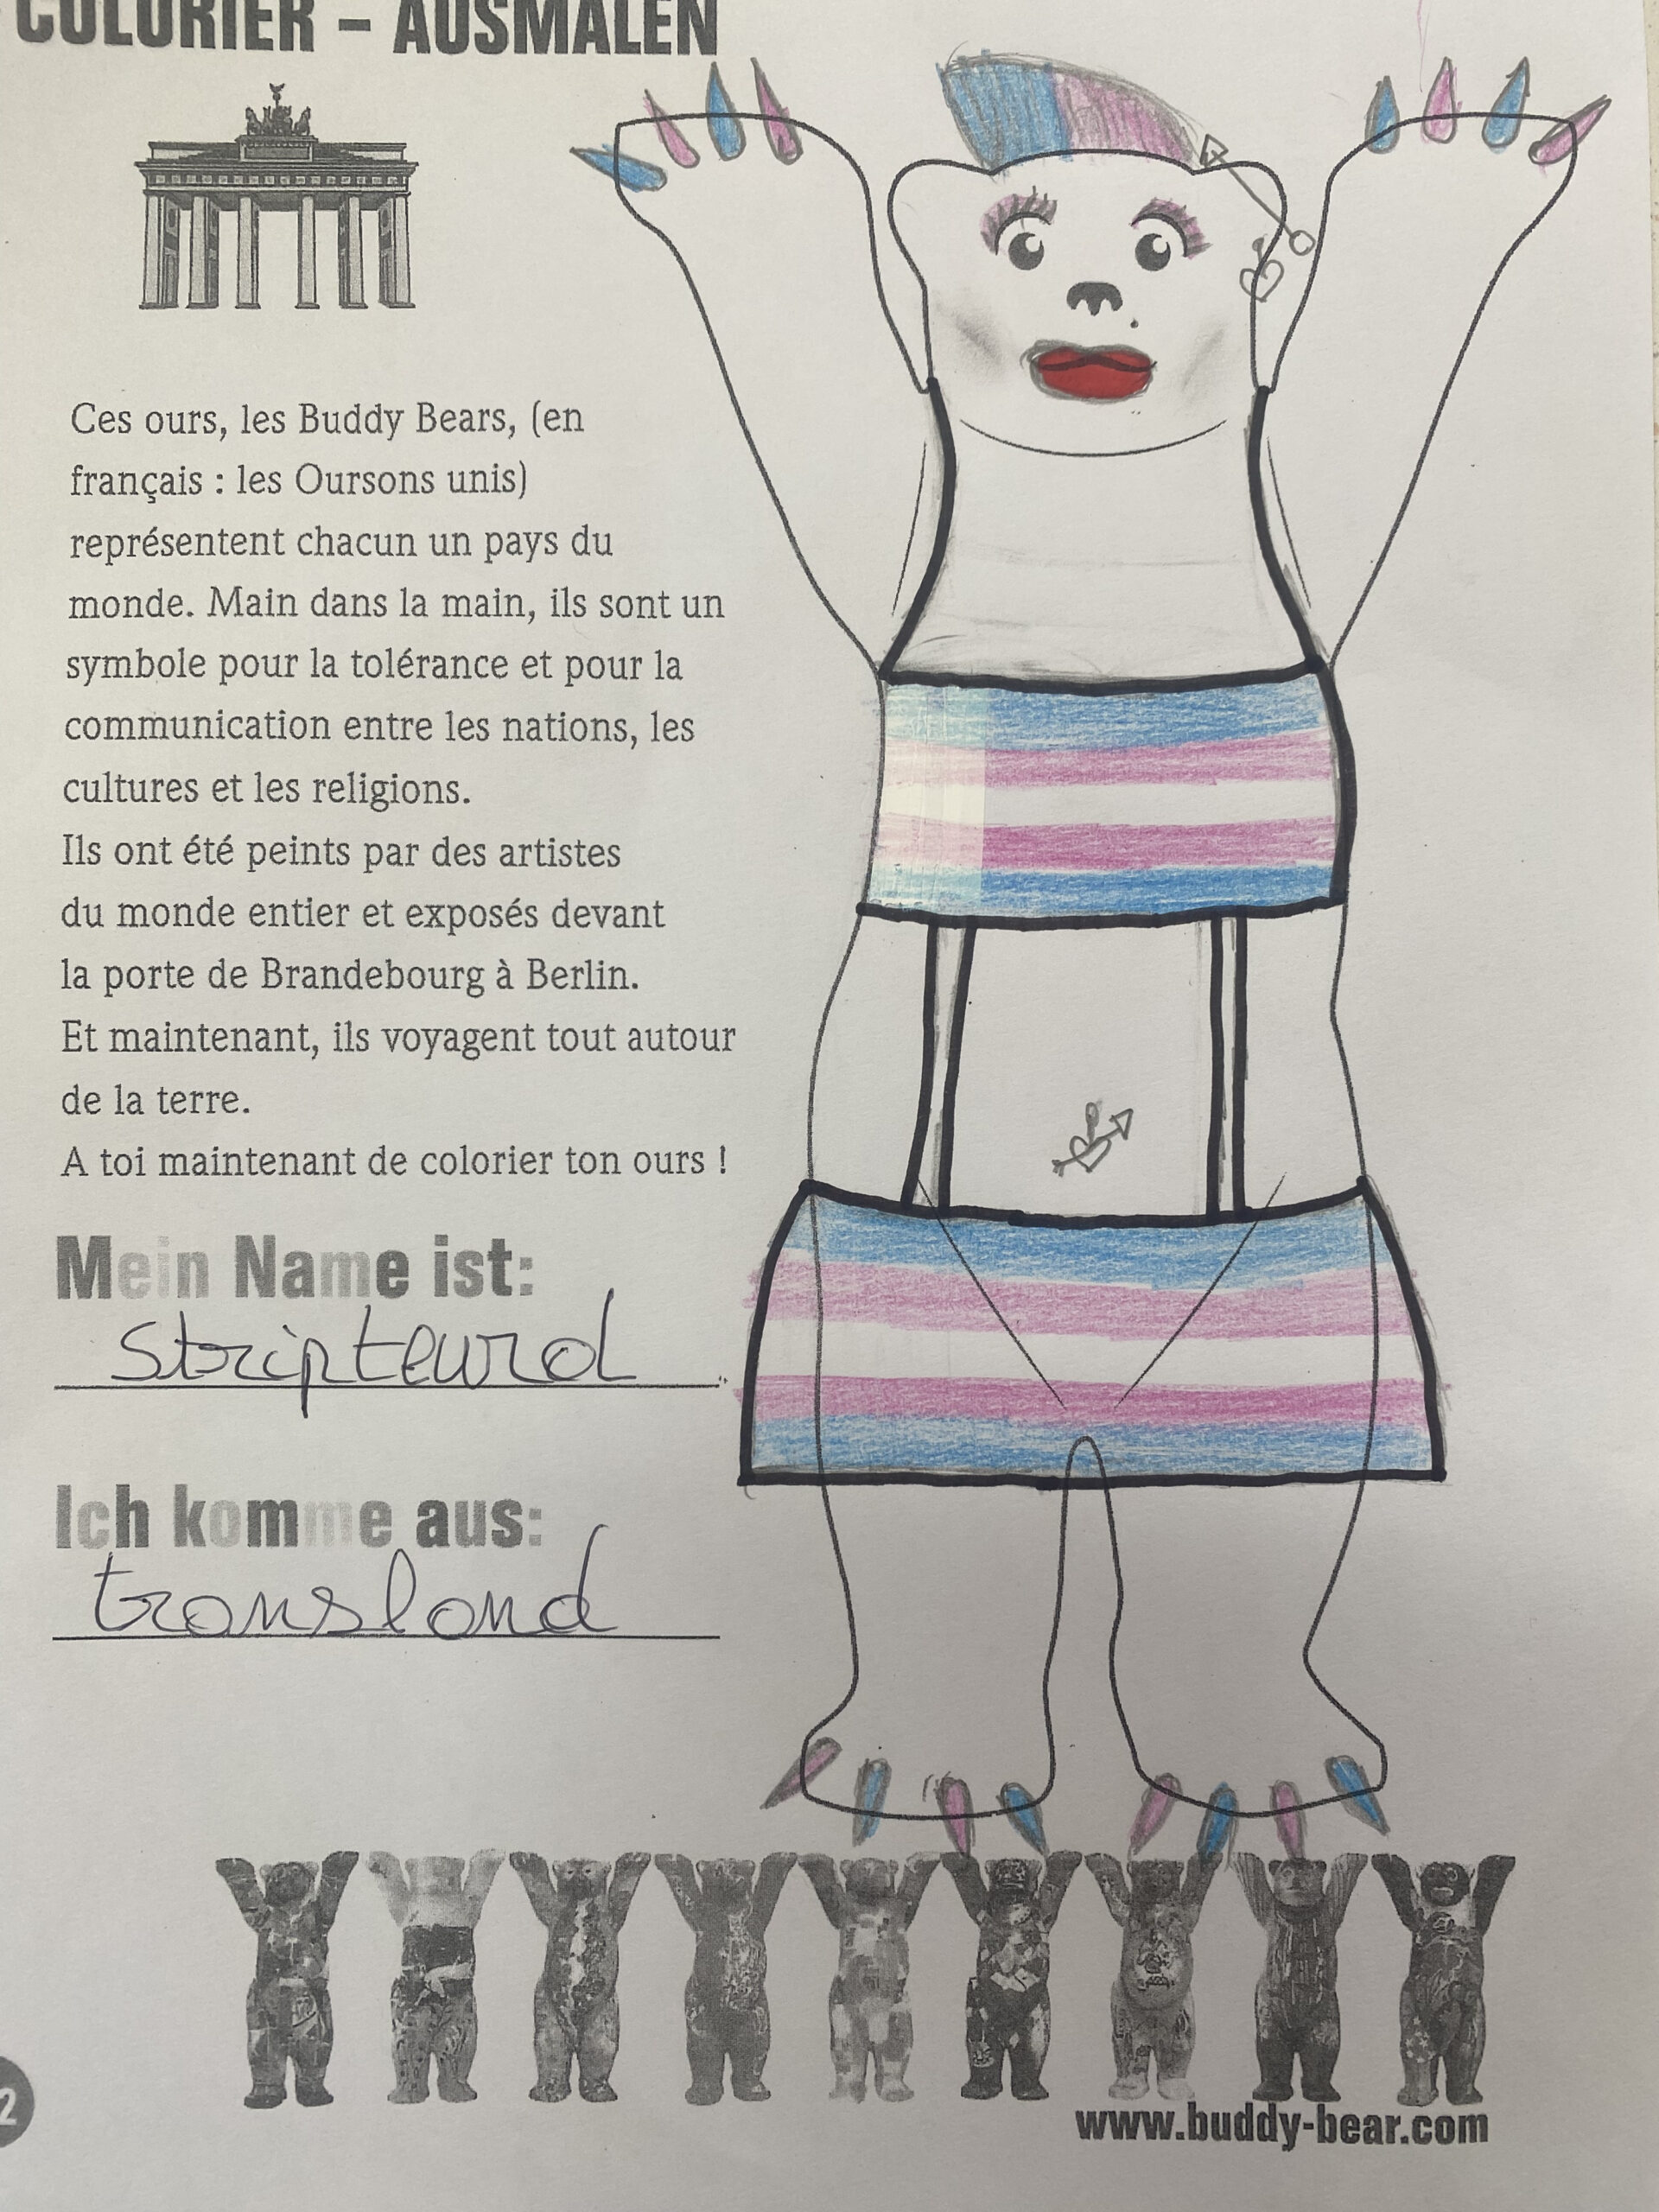 COLORIER – AUSMALEN
Ces ours, les Buddy Bears, (en
français : les Oursons unis)
représentent chacun un pays du
monde. Main dans la main, ils sont un
symbole pour la tolérance et pour la
communication entre les nations, les
cultures et les religions.
Ils ont été peints par des artistes
du monde entier et exposés devant
la porte de Brandebourg à Berlin.
Et maintenant, ils voyagent tout autour
de la terre.
A toi maintenant de colorier ton ours !
Mein Name ist:
stripteurd
Ich komme aus:
transland
2
www.buddy-bear.com